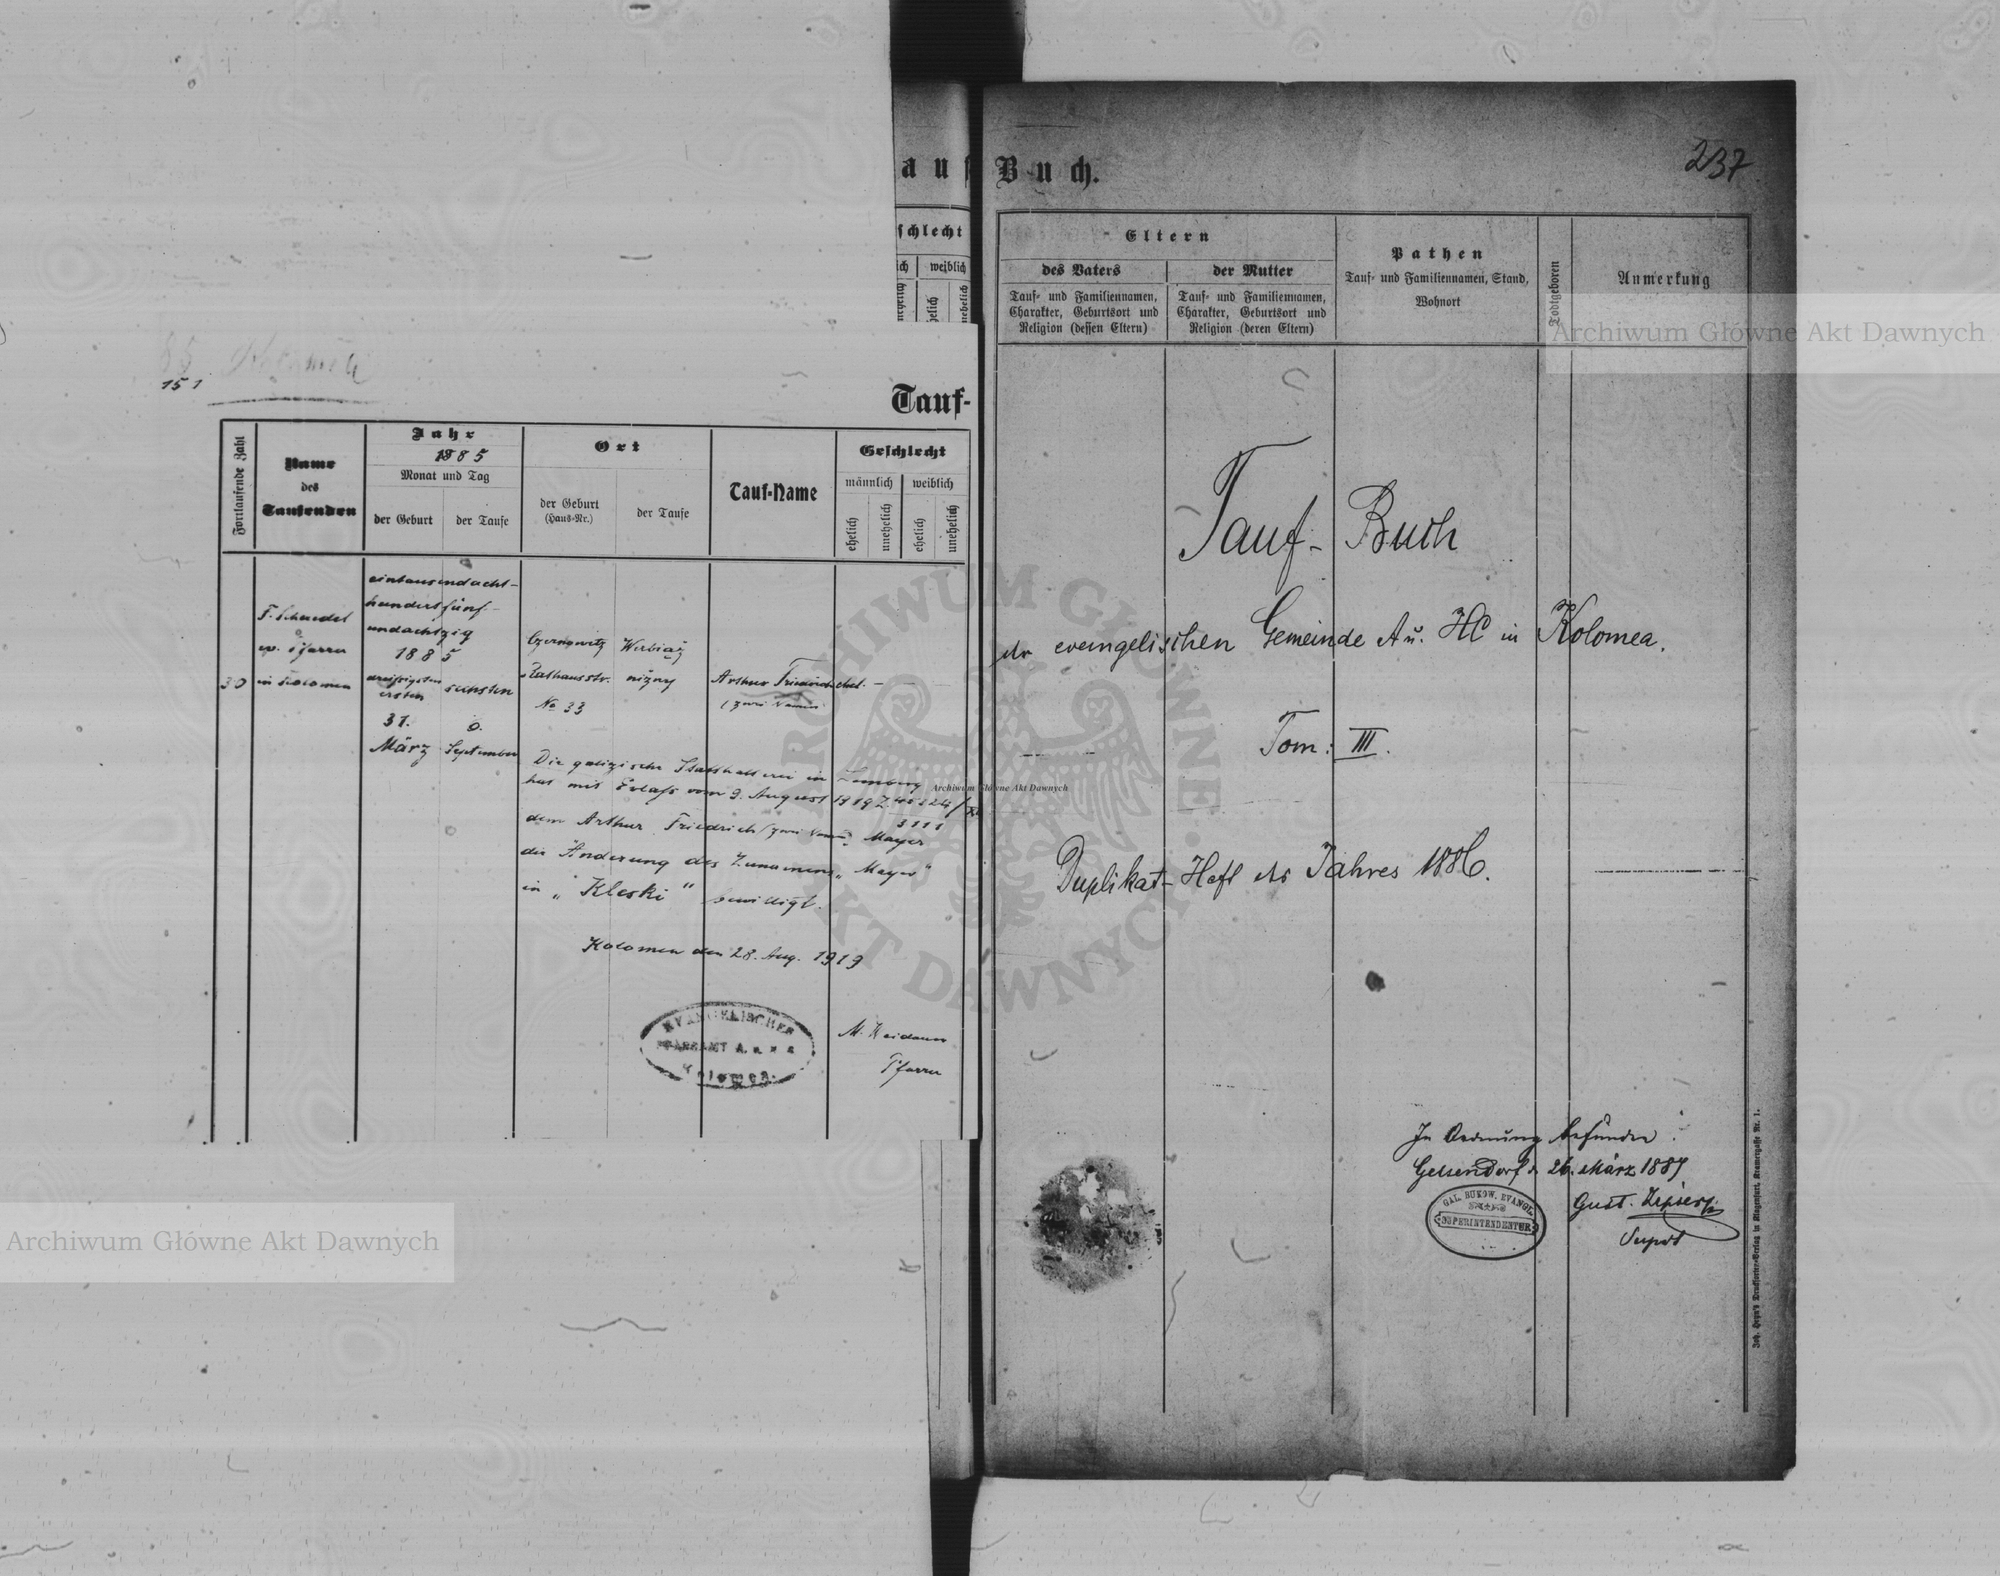 151
Tauf-
Fortlaufende Zahl
Name
des
Taufenden
Jahr
1885
Monat und Tag
der Geburt
der Taufe
Ort
der Geburt
(Haus-Nr.)
der Taufe
Tauf-Name
Geschlecht
männlich
weiblich
ehelich
unehelich
ehelich
unehelich
30
ev. Pfarrer
in Kolomea
eintausendacht-
hundertfünf-
undachtzig
1885
dreißigsten
ersten
31.
März
sechsten
6.
September
Czernowitz
Rathausstr.
No 33
Wierbiąż
niżny
Arthur Friedrich
(zwei Namen)
ehel.
Die galizische Statthalterei in Lemberg
hat mit Erlaß vom 9. August
3111
dem Arthur Friedrich (zwei Namen) Mayer
die Änderung des Zunamens „Mayer"
in „Kleski" bewilligt.
Kolomea den 28. Aug. 1913
EVANGELISCHES
PFARRAMT A. u. H. B.
Kolomea.
Pfarrer
Buch.
237
Eltern
des Vaters
Tauf- und Familiennamen,
Charakter, Geburtsort und
Religion (dessen Eltern)
der Mutter
Tauf- und Familiennamen,
Charakter, Geburtsort und
Religion (deren Eltern)
Pathen
Tauf- und Familiennamen, Stand,
Wohnort
Todtgeboren
Anmerkung
weiblich
Tauf-Buch
der evangelischen Gemeinde A u. HC in Kolomea.
Tom: III.
Duplikat-Heft des Jahres 1886.
In Ordnung befunden:
Gelsendorf 26. März 1887
GAL. BUKOW. EVANGL.
SUPERINTENDENTUR
Gust.
Supdt
Joh. Heyn's Drucksorten-Verlag in Klagenfurt, Kramergasse Nr. 1.
Archiwum Główne Akt Dawnych
Archiwum Główne Akt Dawnych
Archiwum Główne Akt Dawnych
ARCHIWUM GŁÓWNE AKT DAWNYCH